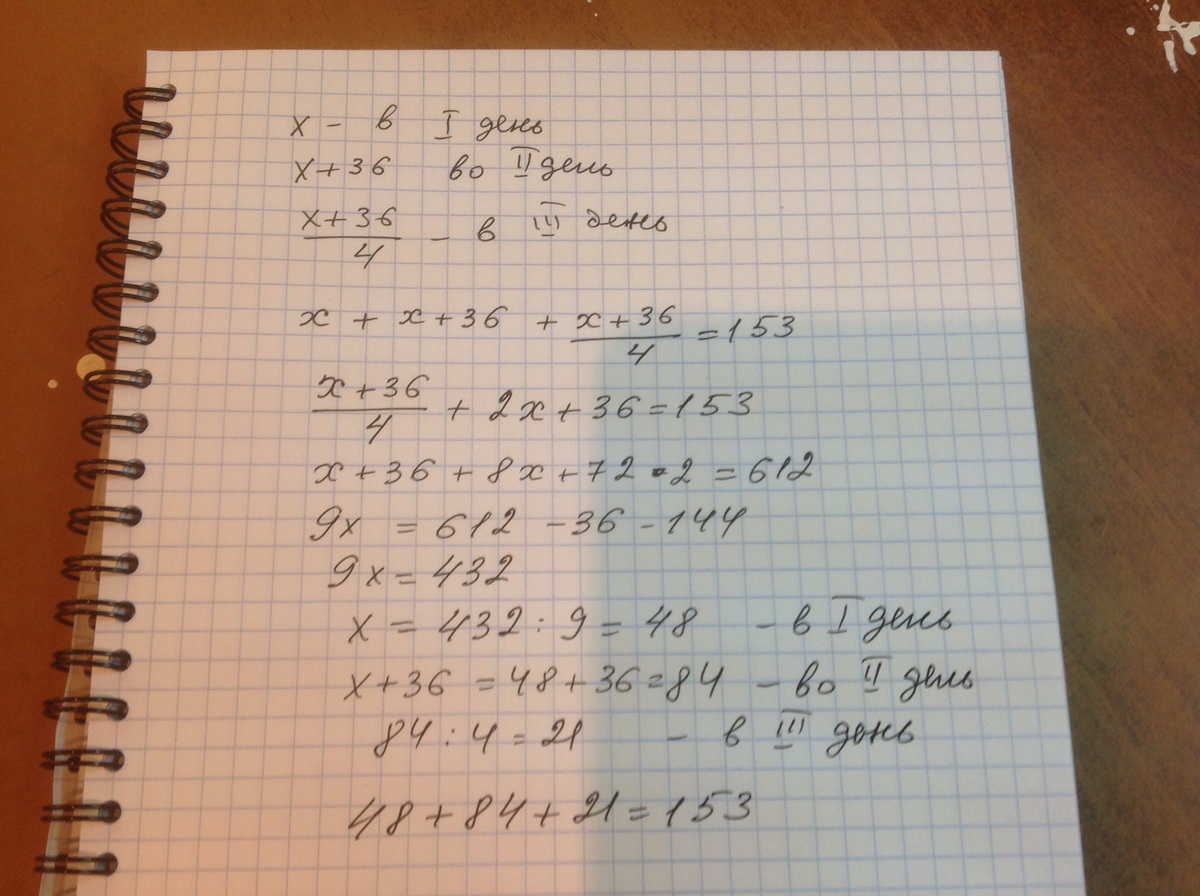 x - в I день
x+36 во II день
x+36
4 - в III день
x + x+36 + x+36/4 = 153
x+36/4 + 2x+36=153
x+36+8x+72·2=612
9x = 612 -36 -144
9x=432
x = 432:9=48 - в I день
x+36 =48+36=84 - во II день
84:4=21 - в III день
48+84+21=153